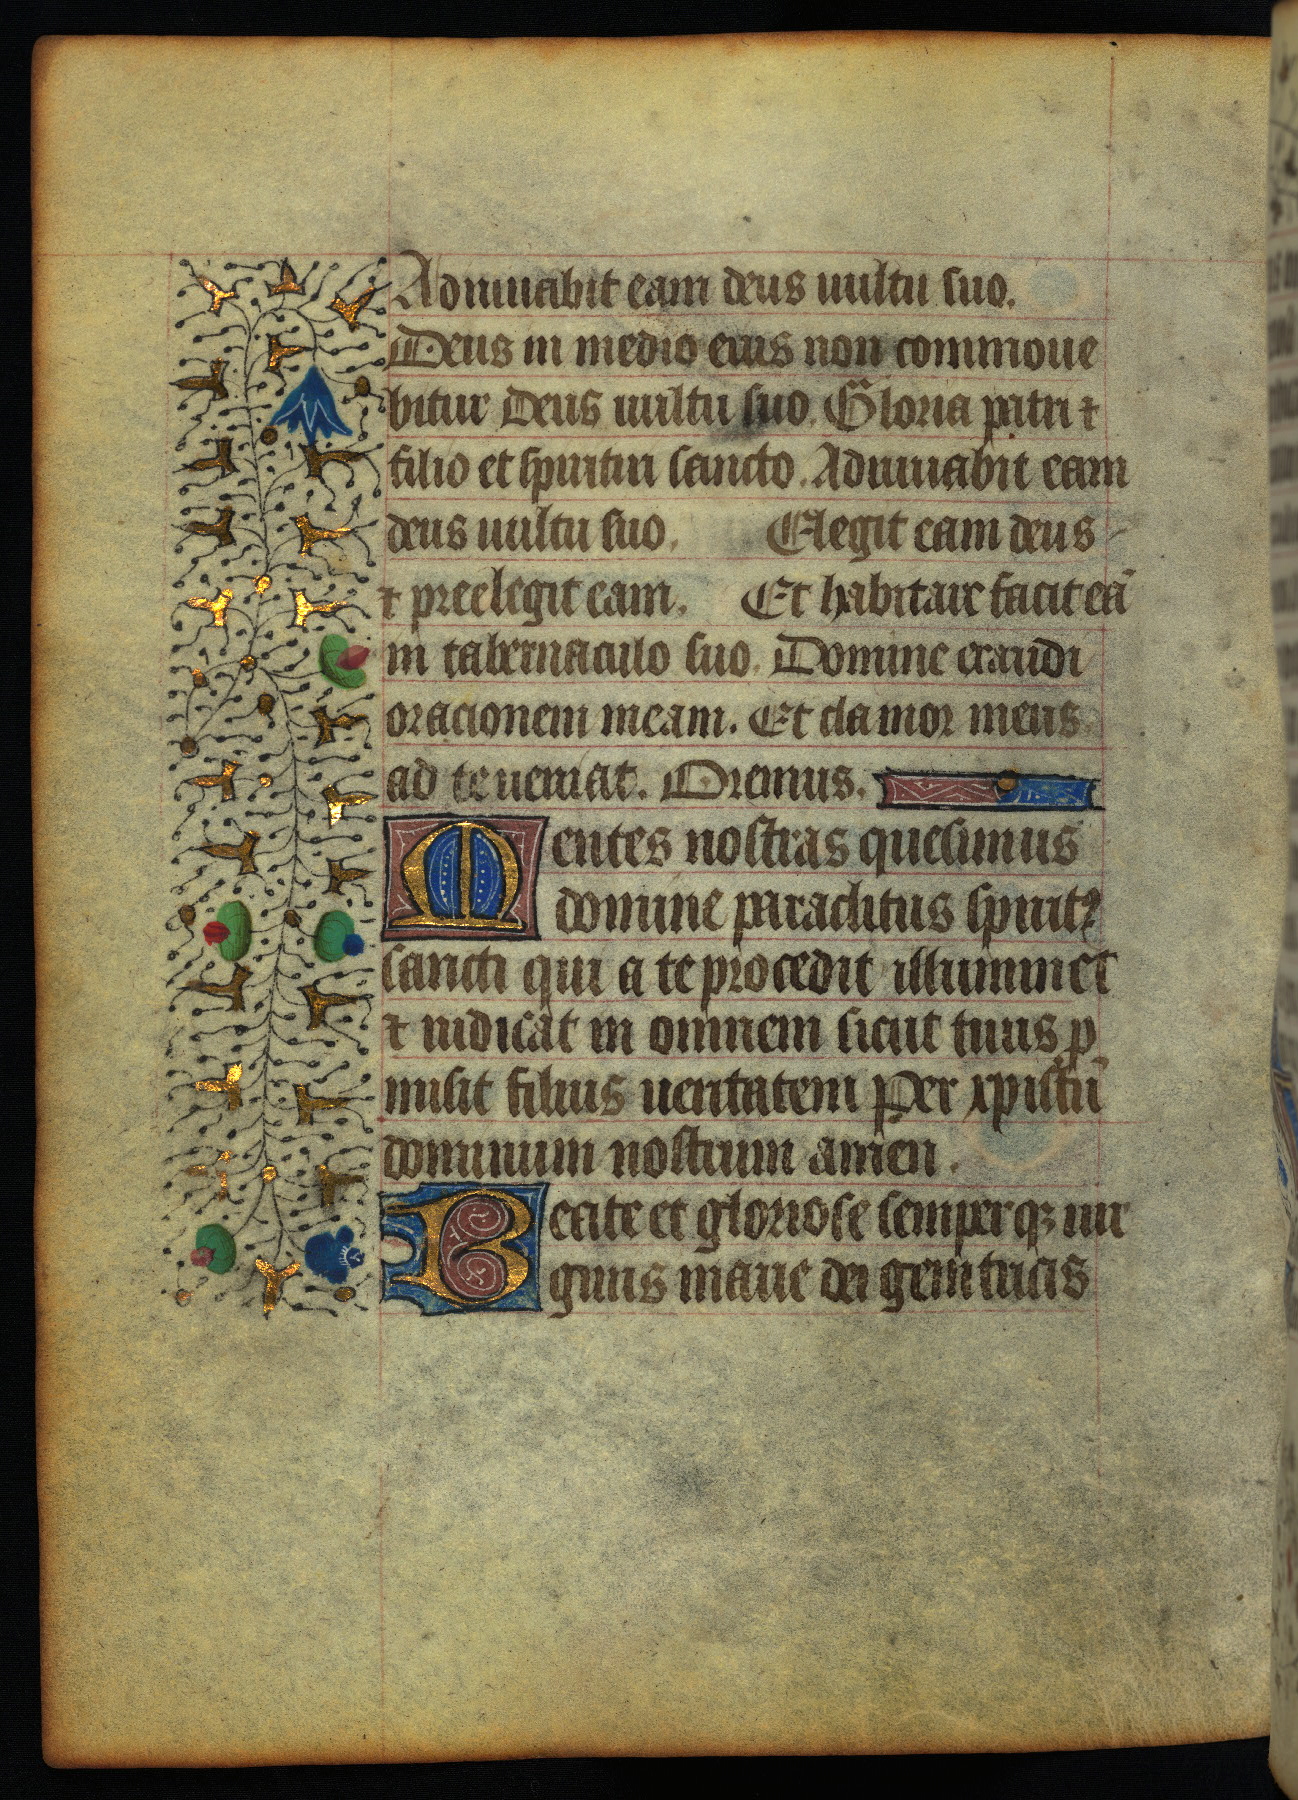 Adiuuabit eam deus uultu suo.
Deus in medio eius non commoue
bitur Deus uultu suo. Gloria patri ⁊
filio et spiritui sancto. Adiuuabit eam
deus uultu suo. Elegit eam deus
⁊ preelegit eam. Et habitare facit eā
in tabernaculo suo. Domine exaudi
oracionem meam. Et clamor meus
ad te ueniat. Oremus.
Mentes nostras quesumus
domine paraclitus spiritꝯ
sancti qui a te procedit illuminet
⁊ inducat in omnem sicut tuus ꝓ
misit filius ueritatem Per xpistū
dominum nostrum amen.
Beate et gloriose semperqꝫ uir
ginis marie dei genitricis